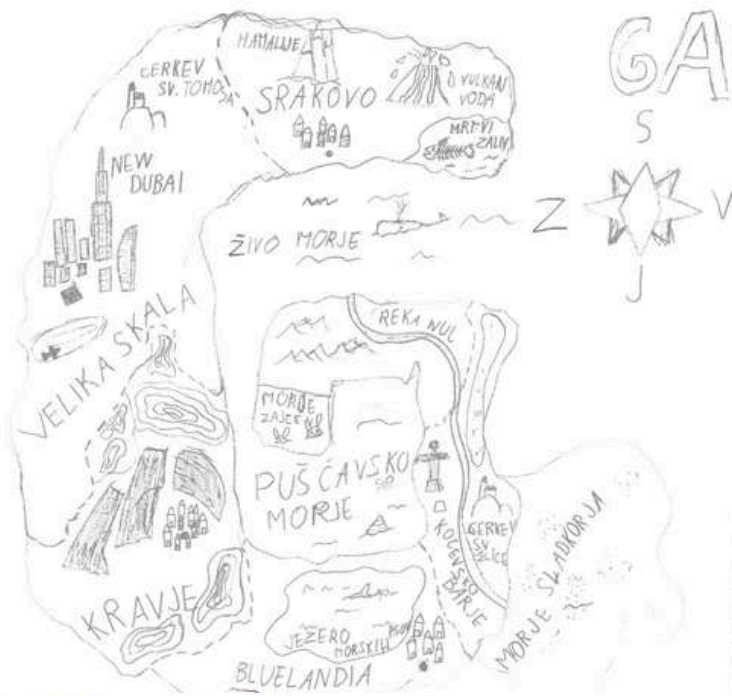 GA
HAMALIJE
CERKEV
SV. TOMO
ŽA
SRAKOVO
VULKAN
VODA
MRTVI
ZALIV
NEW
DUBAI
S
Z
V
J
ŽIVO MORJE
VELIKA SKALA
REKA NUL
MORJE
ZAJCEV
PUŠČAVSKO
MORJE
CERKEV
SV.
KOLENSKO
BARJE
MORJE SLADKORJA
KRAVJE
JEZERO
MORSKIH PSOV
BLUELANDIA